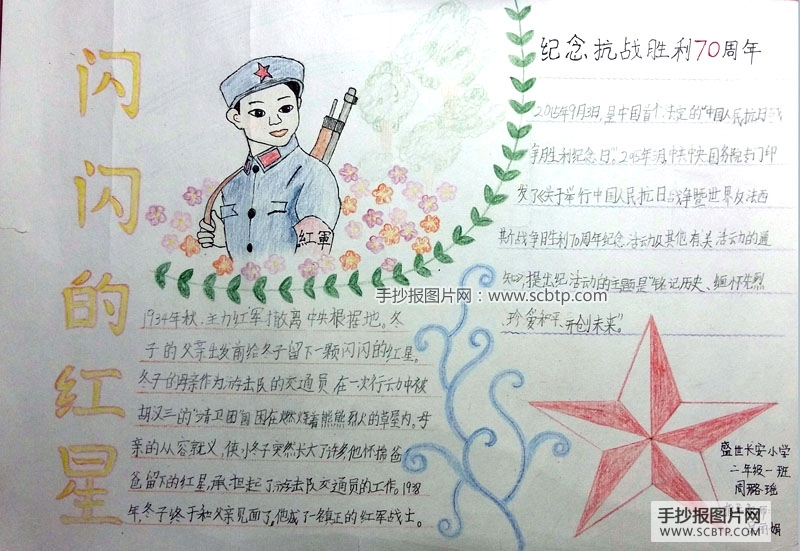 闪闪的红星
紅軍
纪念抗战胜利70周年
2015年9月3日,是中国首个法定的"中国人民抗日战
争胜利纪念日"。2015年3月,中共中央国务院专门印
发了《关于举行中国人民抗日战争暨世界反法西
斯战争胜利70周年纪念活动及其他有关活动的通
知》,提出纪念活动的主题是"铭记历史、缅怀先烈
、珍爱和平、开创未来"。
手抄报图片网:www.scbtp.com
1934年秋,主力红军撤离中央根据地。冬
子的父亲出发前给冬子留下一颗闪闪的红星。
冬子的母亲作为游击队的交通员在一次行动中被
胡汉三的"靖卫团"围困在燃烧着熊熊烈火的草屋内。母
亲的从容就义,使小冬子突然长大了许多,他怀揣爸
爸留下的红星,承担起了游击队交通员的工作。1938
年,冬子终于和父亲见面了,他成了一名真正的红军战士。
盛世长安小学
二年级一班
周璐瑶
手抄报图片网
WWW.SCBTP.COM
娟